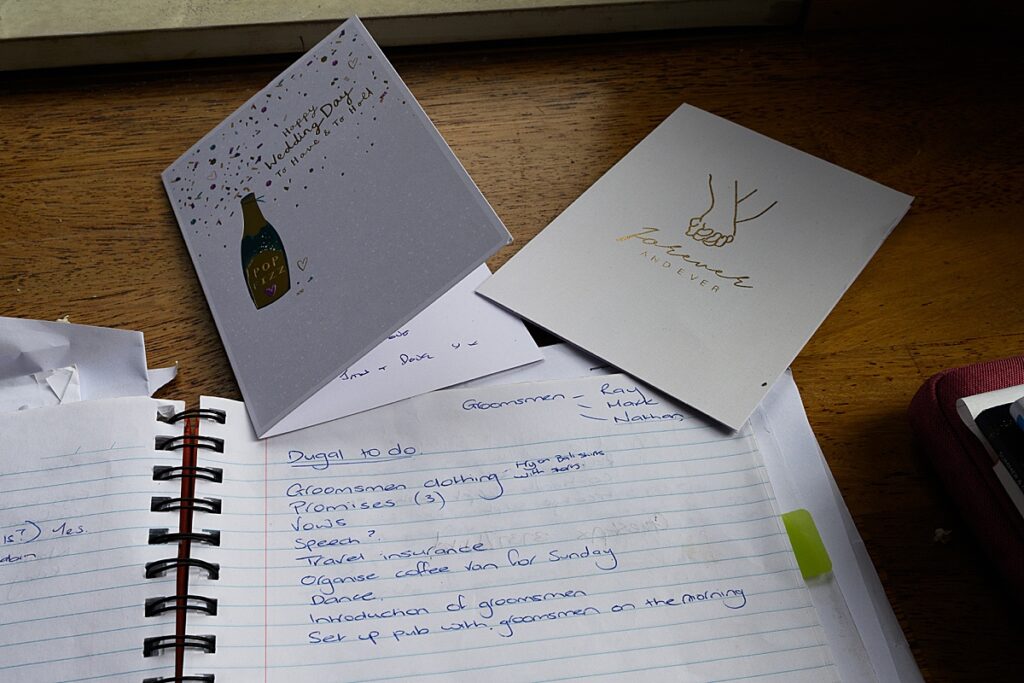 Happy
Wedding Day
To Have & To Hold
POP
FIZZ
Forever
AND EVER
Dave x x
Groomsmen - Ray
Mark
Nathan
Dugal to do
Groomsmen clothing - Try on Bali shirts
with
Promises (3)
Vows
Speech?
Travel insurance
Organise coffee van for Sunday
Dance
Introduction of groomsmen
Set up pub with groomsmen on the morning
is?) Yes.